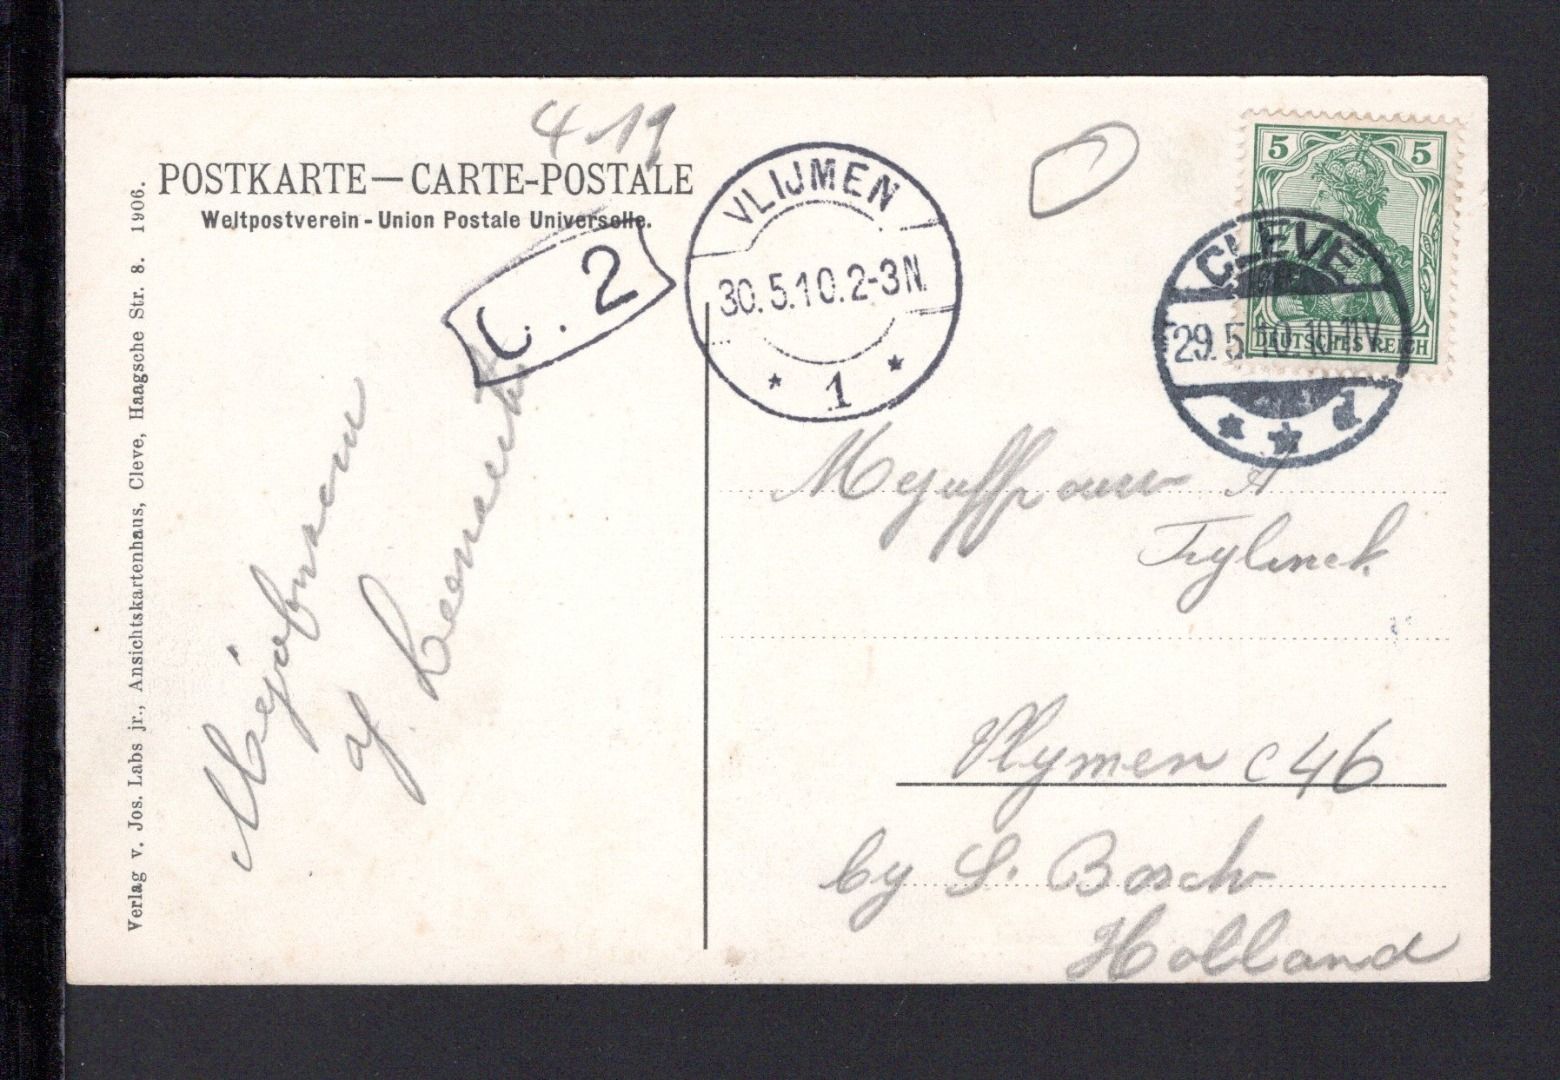 4 19
POSTKARTE—CARTE-POSTALE
Weltpostverein - Union Postale Universelle.
C. 2
VLIJMEN
30.5.10.2-3N.
* 1 *
5 5
DEUTSCHES REICH
CLEVE
29.5.10.10-11V.
* * d
Verlag v. Jos. Labs jr., Ansichtskartenhaus, Cleve, Haagsche Str. 8. 1906.
Mejuffrouw A
Vlymen C 46
by S. Bosch
Holland